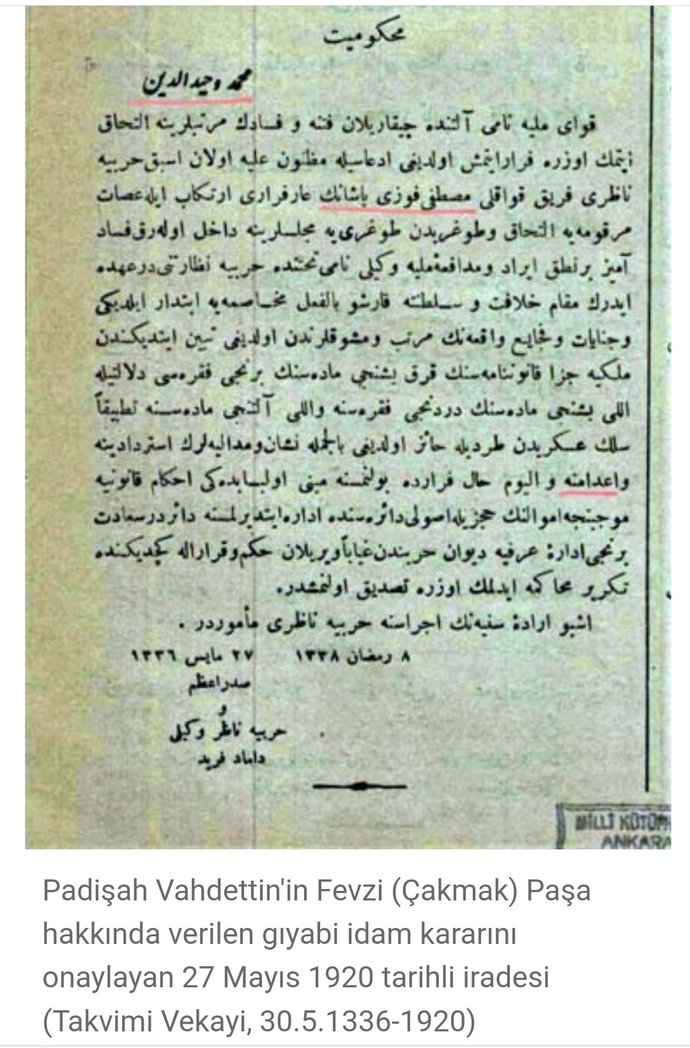 محكوميت
محمد وحيدالدين
قواى مليه نامى آلتنده چيقاريلان فتنه و فسادك مرتبلرينه التحاق
ايتمك اوزره فرار ايتمش اولديغى ادعاسيله مظنون عليه اولان اسبق حربيه
ناظرى فريق قواقلى مصطفى فوزى پاشانك عار فرارى ارتكاب ايله عصات
مرقومه يه التحاق وطوغريدن طوغرى يه مجلسلرينه داخل اوله رق فساد
آميز بر نطق ايراد ومدافعۀ مليه وكيلى نامى تحتنده حربيه نظارتنى درعهده
ايدرك مقام خلافت و سلطنته قارشو بالفعل مخاصمه يه ابتدار ايلديكى
وجنايات وفجايع واقعه نك مرتب ومشوقلرندن اولديغى تبين ايتديكندن
ملكيه جزا قانوننامه سنك قرق بشنجى ماده سنك برنجى فقره سى دلالتيله
اللى بشنجى ماده سنك دردنجى فقره سنه واللى آلتنجى ماده سنه تطبيقاً
سلك عسكريدن طرديله حائز اولديغى بالجمله نشان ومداليه لرك استردادينه
واعدامنه و اليوم حال فرارده بولنمسنه مبنى اولبابده كى احكام قانونيه
موجبنجه اموالنك حجزيله اصولى دائره سنده اداره ايتديرلمسنه دائر درسعادت
برنجى ادارۀ عرفيه ديوان حربندن غياباً ويريلان حكم وقرار اله كچديكنده
تكرير محاكمه ايدلمك اوزره تصديق اولنمشدر.
اشبو ارادۀ سنيه نك اجراسنه حربيه ناظرى مأموردر .
٨ رمضان ١٣٣٨ ٢٧ مايس ١٣٣٦
صدراعظم
و
حربيه ناظر وكيلى
داماد فريد
MİLLÎ KÜTÜPH
ANKARA
Padişah Vahdettin'in Fevzi (Çakmak) Paşa
hakkında verilen gıyabi idam kararını
onaylayan 27 Mayıs 1920 tarihli iradesi
(Takvimi Vekayi, 30.5.1336-1920)